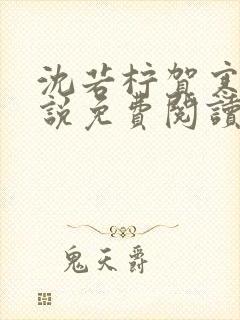 沈若柠贺寒
说免費閱讀
鬼天爵